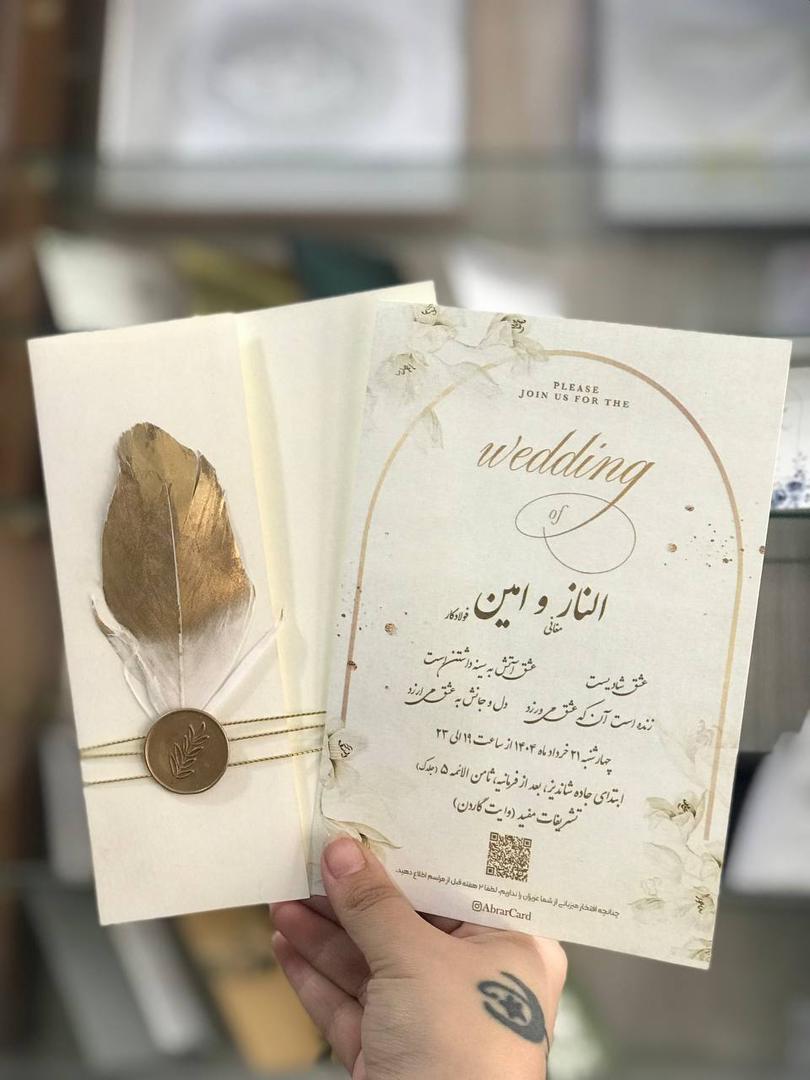 PLEASE
JOIN US FOR THE
wedding
of
الناز و امین
مغانی فولادکار
عشق شادیست عشق آتش به سینه داشتن است
زنده است آن که عشق می ورزد دل و جانش به عشق می ارزد
چهارشنبه ۲۱ خرداد ماه ۱۴۰۴ از ساعت ۱۹ الی ۲۳
ابتدای جاده شاندیز، بعد از فرمانیه، ثامن الائمه ۵ (جلدک)
تشریفات مفید (وایت گاردن)
چنانچه افتخار میزبانی از شما عزیزان را نداریم، لطفا ۲ هفته قبل از مراسم اطلاع دهید.
AbrarCard